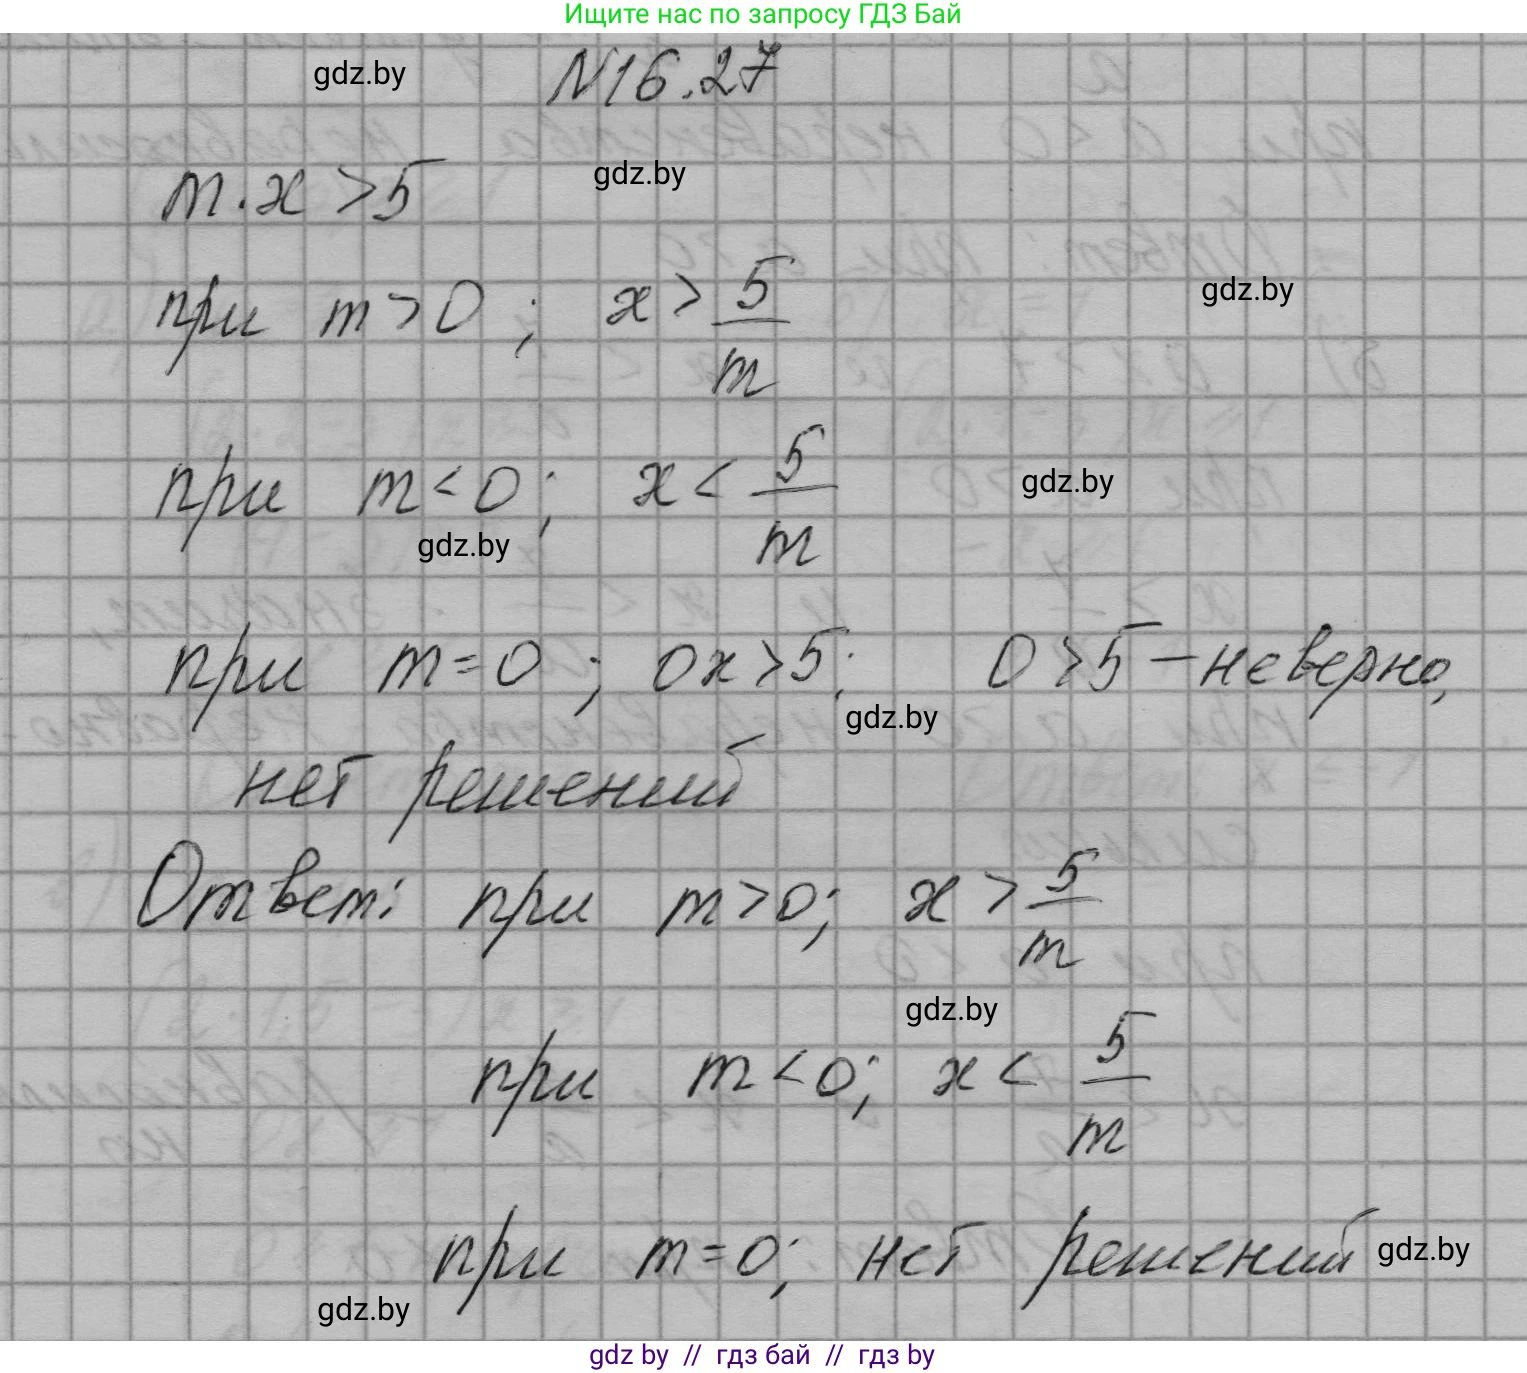 Ищите нас по запросу ГДЗ Бай
gdz.by
N16.27
gdz.by
m·x > 5
при m > 0; x > 5/m
gdz.by
при m < 0; x < 5/m
gdz.by
gdz.by
при m = 0; 0x > 5; 0 > 5 – неверно,
gdz.by
нет решений
Ответ: при m > 0; x > 5/m
gdz.by
при m < 0; x < 5/m
при m = 0; нет решений
gdz.by
gdz.by
gdz by // гдз бай // гдз by